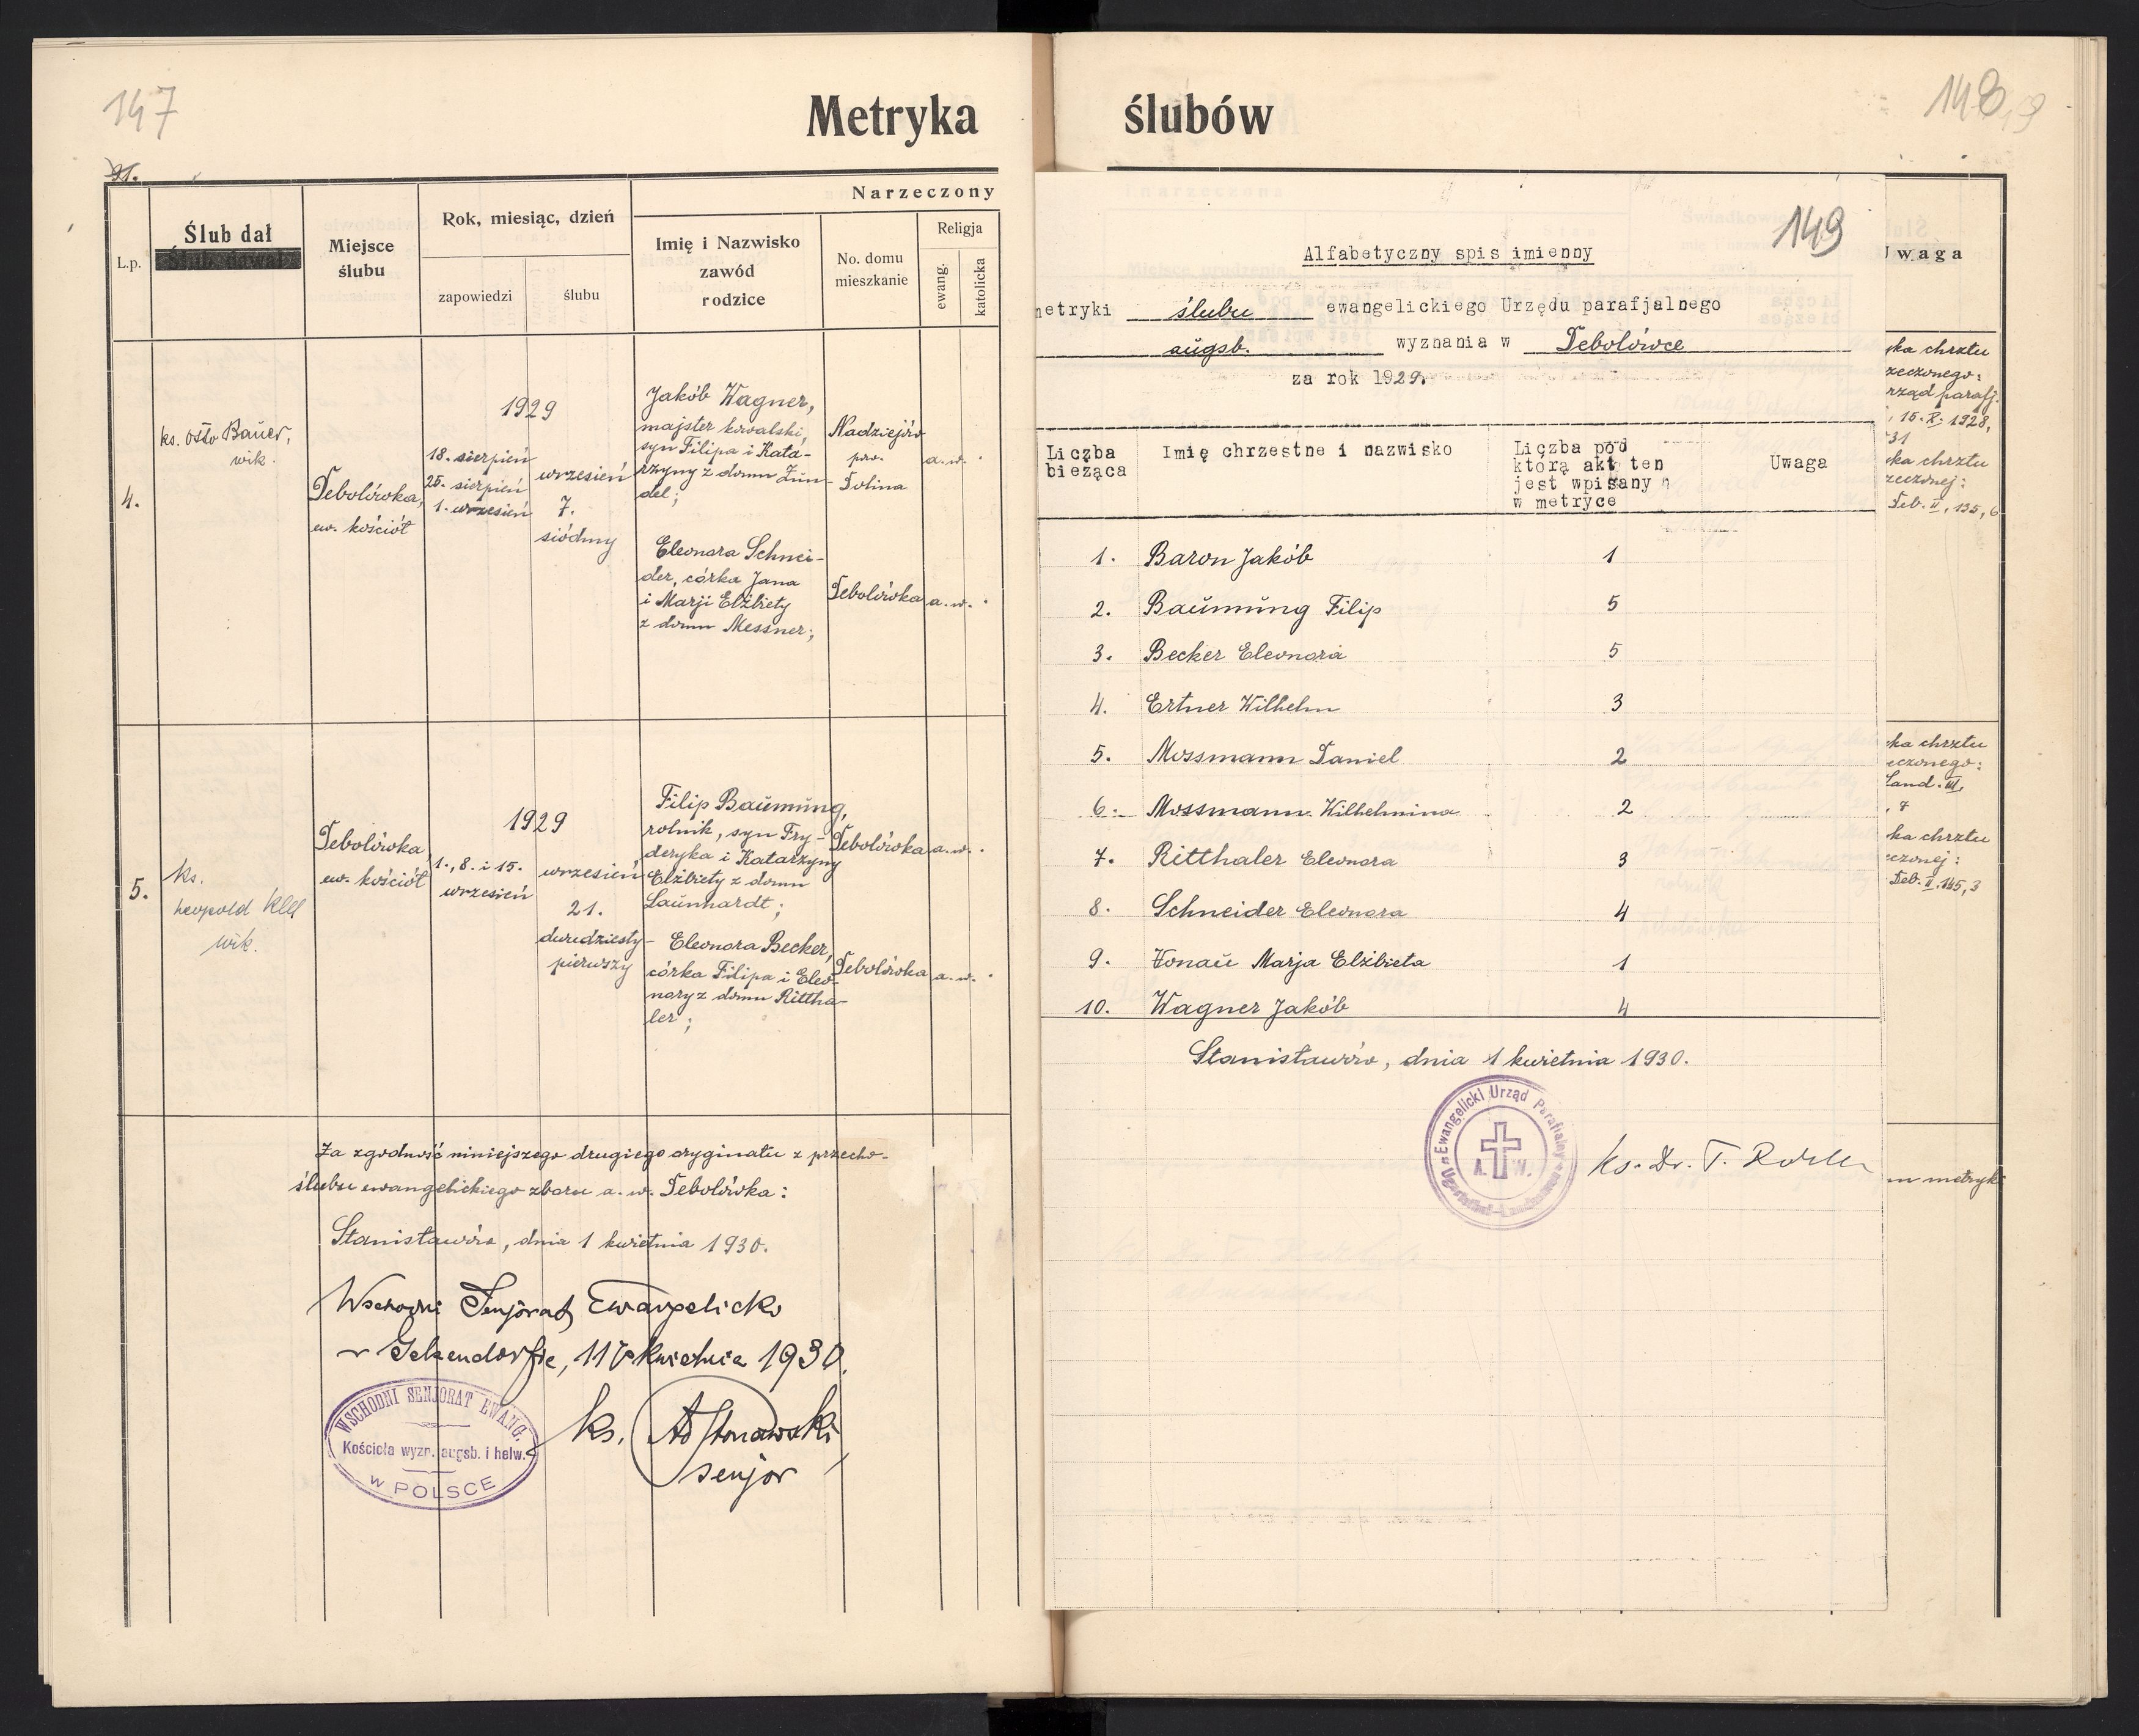 147
Metryka
91.
L.p.
Ślub dał
Miejsce
ślubu
Rok, miesiąc, dzień
zapowiedzi
ślubu
Narzeczony
Imię i Nazwisko
zawód
rodzice
No. domu
mieszkanie
Religja
ewang.
katolicka
4.
ks. Otto Bauer,
wik.
Debolówka,
ew. kościół
1929
18. sierpień
25. sierpień
1. wrzesień
wrzesień
7.
siódmy
Jakób Wagner,
majster kowalski,
syn Filipa i Kata-
rzyny z domu Zün-
del;
Nadziejów
pow.
Dolina
a. w.
Eleonora Schnei-
der, córka Jana
i Marji Elżbiety
z domu Messner;
Debolówka
a. w.
5.
ks.
Leopold Kell
wik.
Debolówka,
ew. kościół
1929
1., 8. i 15.
wrzesień
wrzesień
21.
dwudziesty-
pierwszy
Filip Baumung,
rolnik, syn Fry-
deryka i Katarzyny
Elżbiety z domu
Launhardt;
Debolówka
a. w.
Eleonora Becker,
córka Filipa i Eleo-
nory z domu Rittha-
ler;
Debolówka
a. w.
Za zgodność niniejszego drugiego oryginału z przecho-
ślubu ewangelickiego zboru a. w. Debolówka:
Stanisławów, dnia 1 kwietnia 1930.
Wschodni Senjorat Ewangelicki
w Gelsendorfie, 11 kwietnia 1930.
WSCHODNI SENJORAT EWANG.
Kościoła wyzn. augsb. i helw.
w POLSCE
ks.
senjor
ślubów
148
149
Alfabetyczny spis imienny
metryki ślubu ewangelickiego Urzędu parafjalnego
augsb. wyznania w Debolówce
za rok 1929.
Liczba
bieżąca
Imię chrzestne i nazwisko
Liczba pod
którą akt ten
jest wpisany
w metryce
Uwaga
1. Baron Jakób 1
2. Baumung Filip 5
3. Becker Eleonora 5
4. Ertner Wilhelm 3
5. Mossmann Daniel 2
6. Mossmann Wilhelmina 2
7. Ritthaler Eleonora 3
8. Schneider Eleonora 4
9. Tonau Marja Elżbieta 1
10. Wagner Jakób 4
Stanisławów, dnia 1 kwietnia 1930.
Ewangelicki Urząd Parafialny
A. W.
ks. Dr. T.
Uwaga
ka chrztu
zeczonego:
rząd parafj.
, 15. X. 1928,
31
ka chrztu
zeczonej:
Deb. II, 135, 6
ka chrztu
eczonego:
Land. III,
, 7
ka chrztu
eczonej:
Deb. II, 145, 3
m metryk